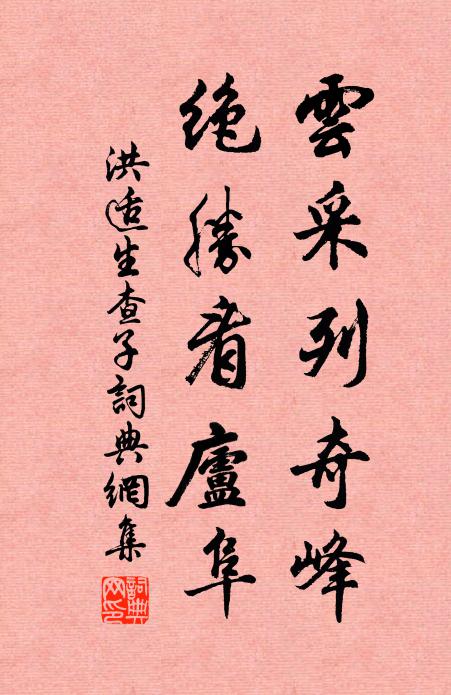 雲采列奇峰
絶勝看廬阜
洪适生查子詞典網集
詞典网印